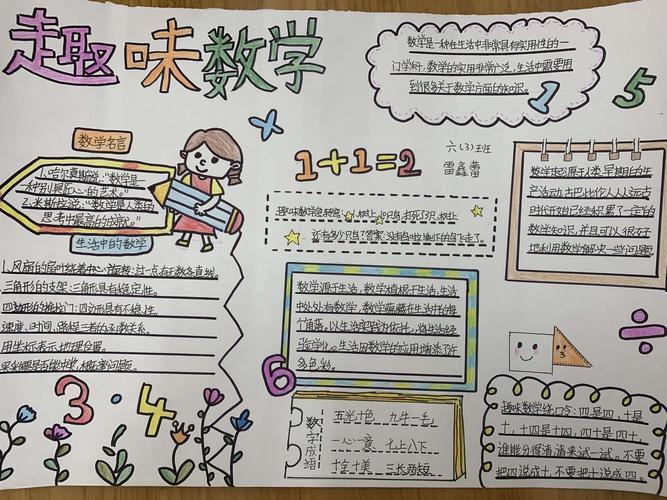 趣味数学
数学是一种在生活中非常具有实用性的一
门学科，数学的实用非常广泛，生活中需要用
到很多关于数学方面的知识。
1
5
×
数学名言
1.哈尔莫斯说：“数学是
一种别具匠心的艺术。”
2.米斯拉说：“数学是人类的
思考中最高的成就。”
1+1=2
六(3)班
雷鑫蕾
数学起源于人类早期的生
产活动，古巴比伦人从远古
时代开始已经积累了一定的
数学知识，并且可以很好
地利用数学解决一些问题
趣味数学急转弯：树上10只鸟，打死了3只，树上
还有多少只鸟？答案：没有鸟啦，剩下的鸟飞走了。
生活中的数学
三角形的支架：三角形具有稳定性。
四边形的推拉门：四边形具有不稳定性。
速度、时间、路程三者的关系。
用坐标表示地理位置。
数学源于生活，数学植根于生活，生活
中处处有数学，数学蕴藏在生活中的每
个角落，
多色彩。
÷
3·4
6
数字成语
五光十色 九牛一毛
一心一意 七上八下
十全十美 三长两短
趣味数学绕口令：四是四，十是
十，十四是十四，四十是四十，
谁能分得清，请来试一试。不要
把四说成十，不要把十说成四。